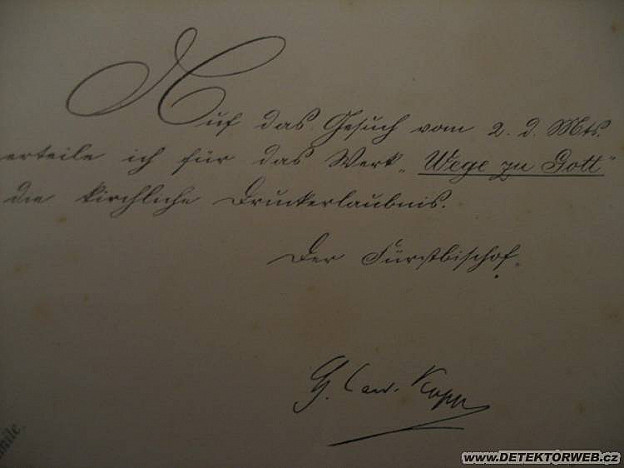 Auf das Gesuch vom 2. d. Mts.
erteile ich für das Werk „Wege zu Gott"
die kirchliche Druckerlaubnis.
Der Fürstbischof.
G. Card. Kopp
mile.
www.DETEKTORWEB.cz